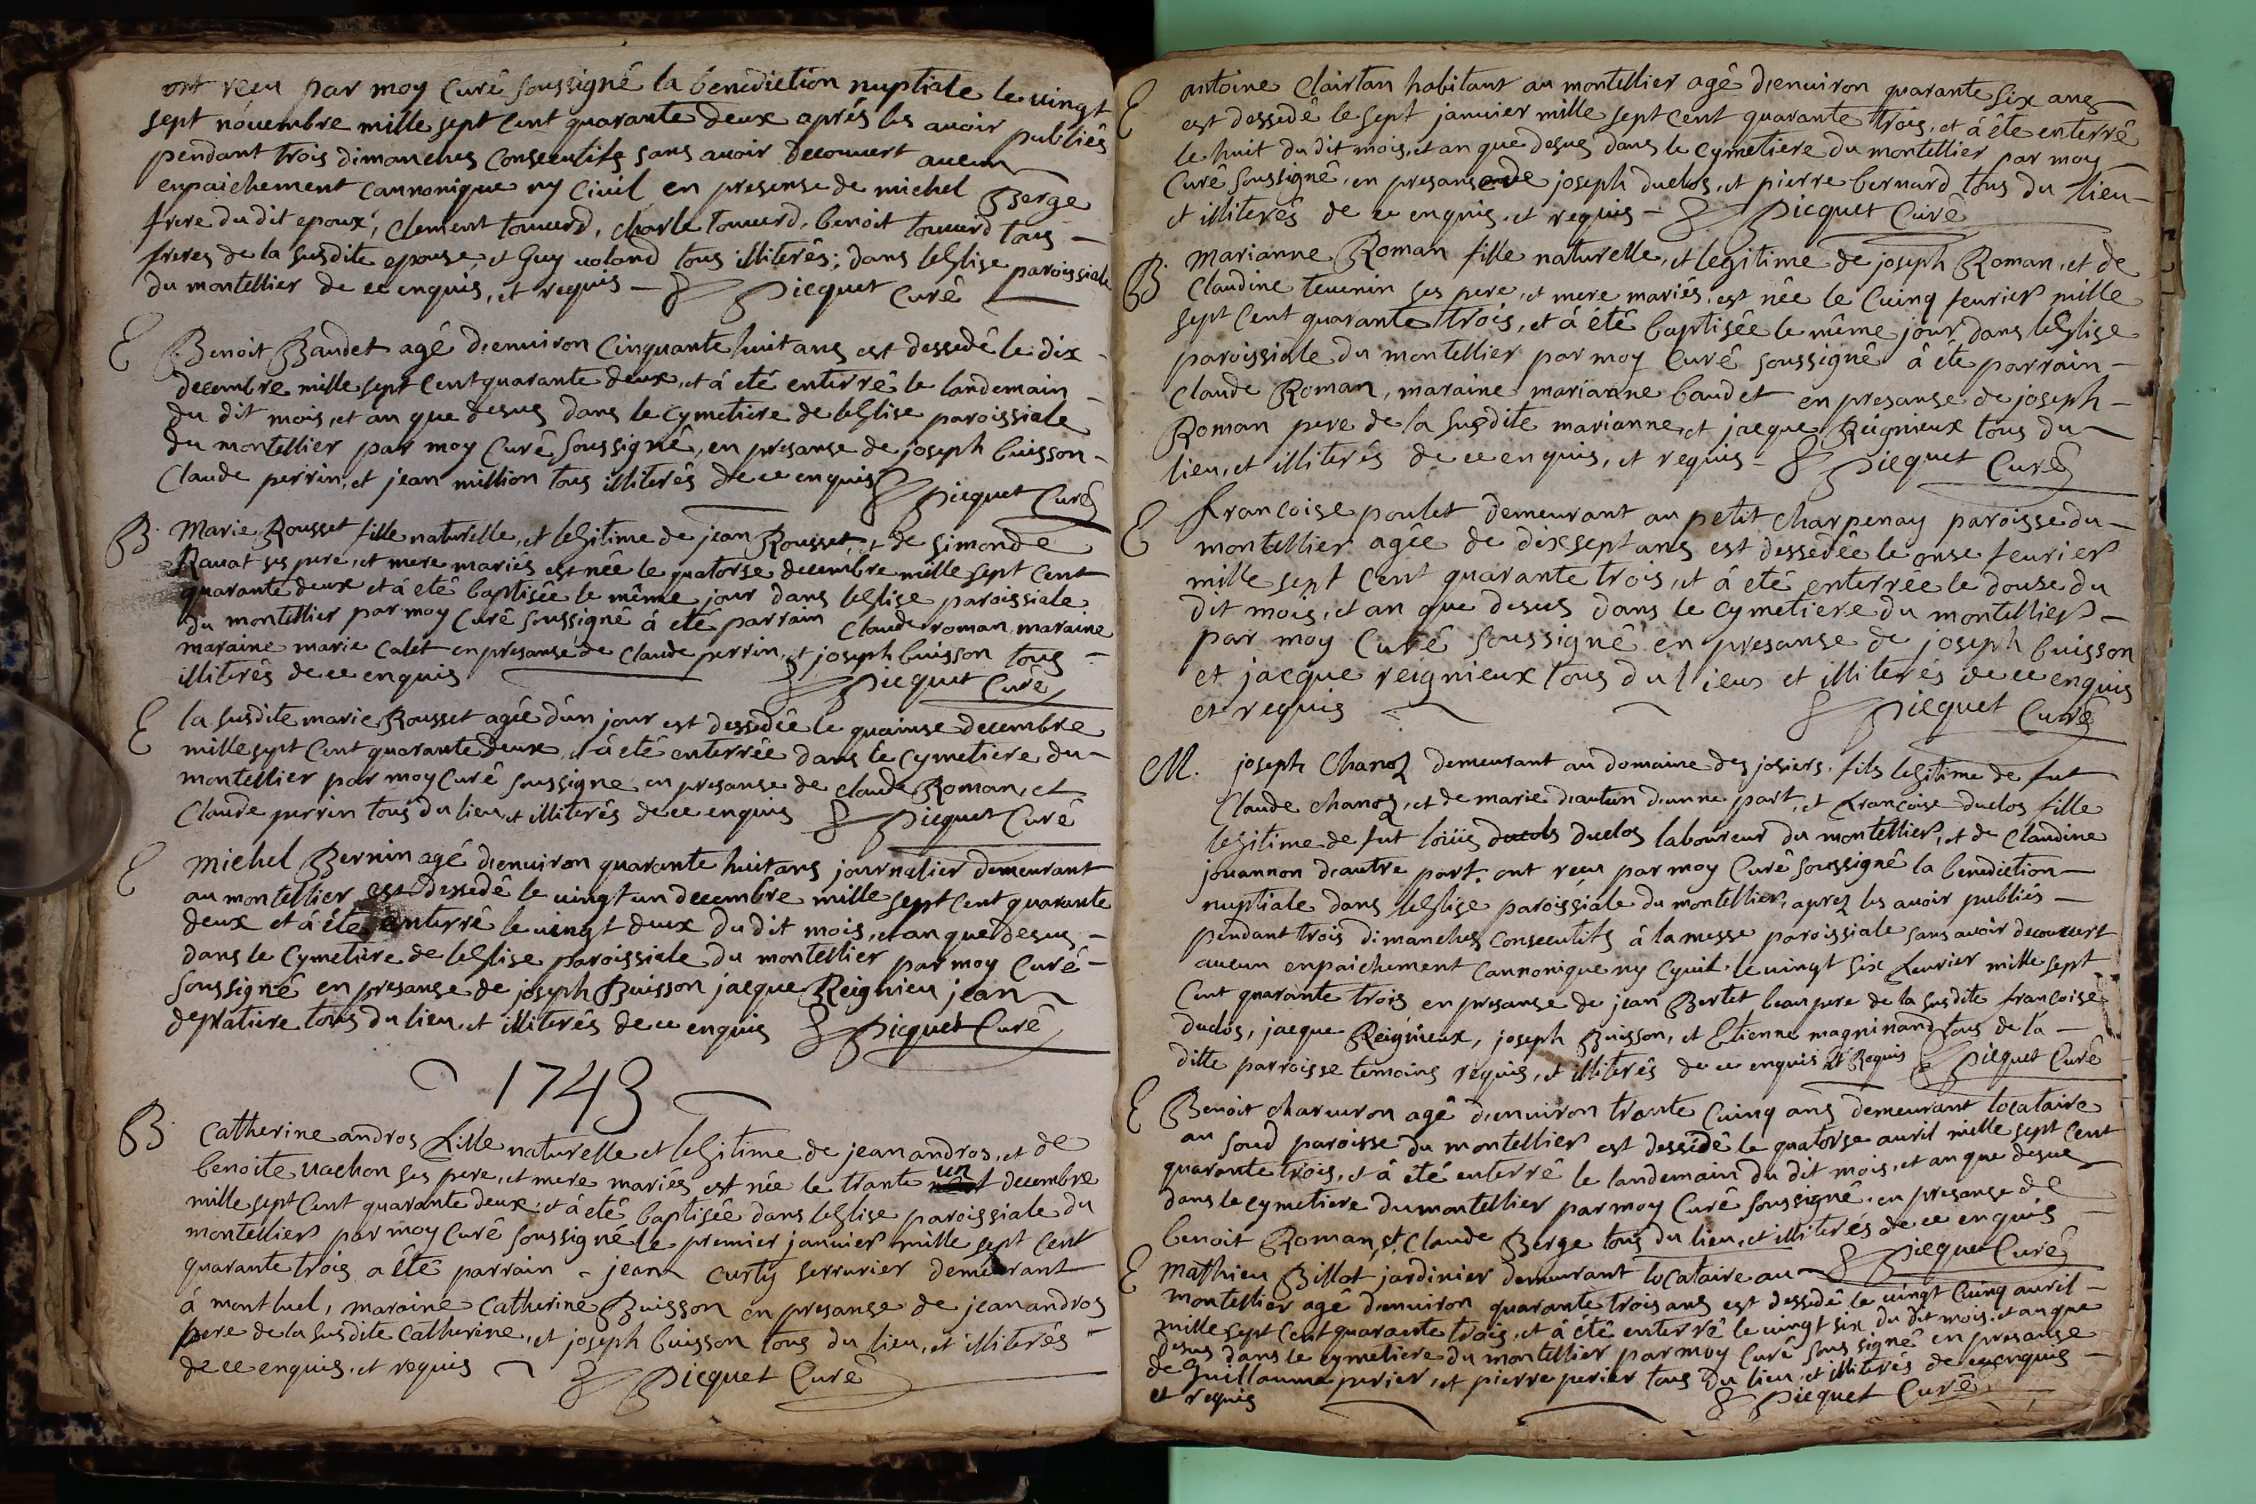 ont reçu par moy Curê soussignê la benediction nuptiale le vingt
sept novembre mille sept cent quarante deux aprés les avoir publiês
pendant trois dimanches Consecutifs sans avoir decouvert aucun
enpaichement cannonique ny Civil en presense de michel Berge
frere du dit epoux, clement touuerd, charle touuerd, benoit touuerd tous
freres de la susdite epouse, et Guy volond tous illiterês; dans leglise paroissiale
du montellier de ce enquis, et requis - Picquet Curê
E Benoit Baudet agê d'environ Cinquante huit ans est dessedê le dix
decembre mille sept cent quarante deux, et á eté enterrê le landemain
du dit mois, et an que desus dans le Cymetiere de leglise paroissiale
du montellier par moy Curê soussignê, en presanse de joseph buisson
Claude perrin, et jean million tous illiterês de ce enquis Picquet Curê
B. Marie Rousset fille naturelle, et legitime de jean Rousset, et de simonde
Ravat ses pere, et mere mariés est née le quatorse decembre mille sept cent
quarante deux et á eté baptisêe le même jour dans leglise paroissiale
du montellier par moy Curé soussignê á eté parrain Claude roman, maraine
maraine marie Calet en presanse de Claude perrin, et joseph buisson tous
illiterês de ce enquis Picquet Curê
E la susdite marie Rousset agée d'un jour est dessedée le quainse decembre
mille sept Cent quarante deux, et á eté enterrêe dans le Cymetiere du
montellier par moy Curê soussigne en presanse de claude Roman, et
Claude perrin tous du lieu, et illiterês de ce enquis Picquet Curê
E Michel Bernin agé d'environ quarante huit ans journalier demeurant
au montellier est dessedê le vingt un decembre mille sept cent quarante
deux et á éte enterrê le vingt deux du dit mois, et an que desus
dans le Cymetiere de leglise paroissiale du montellier par moy Curé
soussignê en presanse de joseph Buisson jacque Reignieu jean
depratiere tous du lieu, et illiterés de ce enquis Picquet Curê
1743
B. Catherine andros fille naturelle et legitime de jean andros, et de
benoite Vachon ses pere, et mere mariés est née le trante un decembre
mille sept Cent quarante deux, et á eté baptisée dans leglise paroissiale du
montellier par moy Curê soussigné le premier janvier mille sept Cent
quarante trois a êtê parrain jean Curty serrurier demeurant
á montluel, maraine Catherine Buisson en presanse de jean andros
pere de la susdite Catherine, et joseph buisson tous du lieu, et illiterês
de ce enquis, et requis Picquet Curê
E antoine Clairtan habitant au montellier agê d'environ quarante six ans
est dessedê le sept janvier mille sept cent quarante trois, et á ête enterré
le huit du dit mois, et an que desus dans le Cymetiere du montellier par moy
Curê soussignê, en presanse de joseph duclos, et pierre bernard tous du lieu
et illiterês de ce enquis, et requis - Picquet Curê
B. Marianne Roman fille naturelle, et legitime de joseph Roman, et de
Claudine tevenin ses pere, et mere mariés, est née le Cuinq fevrier mille
sept Cent quarante trois, et á étê baptisée le même jour dans leglise
paroissiale du montellier par moy Curê soussignê â éte parrain
Claude Roman, maraine marianne baudet en presanse de joseph
Roman pere de la susdite marianne, et jacque Reignieux tous du
lieu, et illiterés de ce enquis, et requis - Picquet Curê
E Francoise poulet demeurant au petit charpenay paroisse du
montellier agée de dixsept ans est dessedée le onse fevrier
mille sept Cent quarante trois, et á eté enterrée le douse du
dit mois, et an que desus dans le Cymetiere du montellier
par moy Curê soussignê en presanse de joseph buisson
et jacque reignieux tous du lieu et illiterés de ce enquis
et requis Picquet Curê
M. joseph Chanoz demeurant au domaine des josiers, fils legitime de fut
Claude Chanoz, et de marie d'autun d'unne part, et Françoise duclos fille
legitime de fut loüis ducols duclos laboureur du montellier, et de Claudine
jouannon d'autre part, ont reçu par moy Curê soussignê la benediction
nuptiale dans leglise paroissiale du montellier, aprez les avoir publiés
pendant trois dimanches Consecutifs á la messe paroissiale sans avoir decouvert
aucun enpaichement Cannonique ny Cyvil, le vingt six Fevrier mille sept
Cent quarante trois en presanse de jean Bertet beaupere de la susdite françoise
duclos, jacque Reignieux, joseph Buisson, et Etienne magninand tous de la
ditte parroisse temoins requis, et illiterês de ce enquis et Requis Picquet Curê
E Benoit charvuron agê d'environ trante Cuinq ans demeurant locataire
au soud paroisse du montellier est dessedê le quatorse avril mille sept Cent
quarante trois, et â eté enterrê le landemain du dit mois, et an que desus
dans le cymetiere du montellier par moy Curê soussigné, en presanse de
benoit Roman, et Claude Berge tous du lieu, et illiterés de ce enquis
Picquet Curê
E Mathieu Billot jardinier demeurant locataire au
montellier agé d'environ quarante trois ans est dessedê le vingt Cuinq avril
mille sept Cent quarante trois, et á été enterrê le vingt six du dit mois, et an que
desus dans le cymetiere du montellier par moy Curê soussignê en presanse
de Guillaume perier, et pierre perier tous du lieu, et illiterés de ce enquis
et requis Picquet Curê